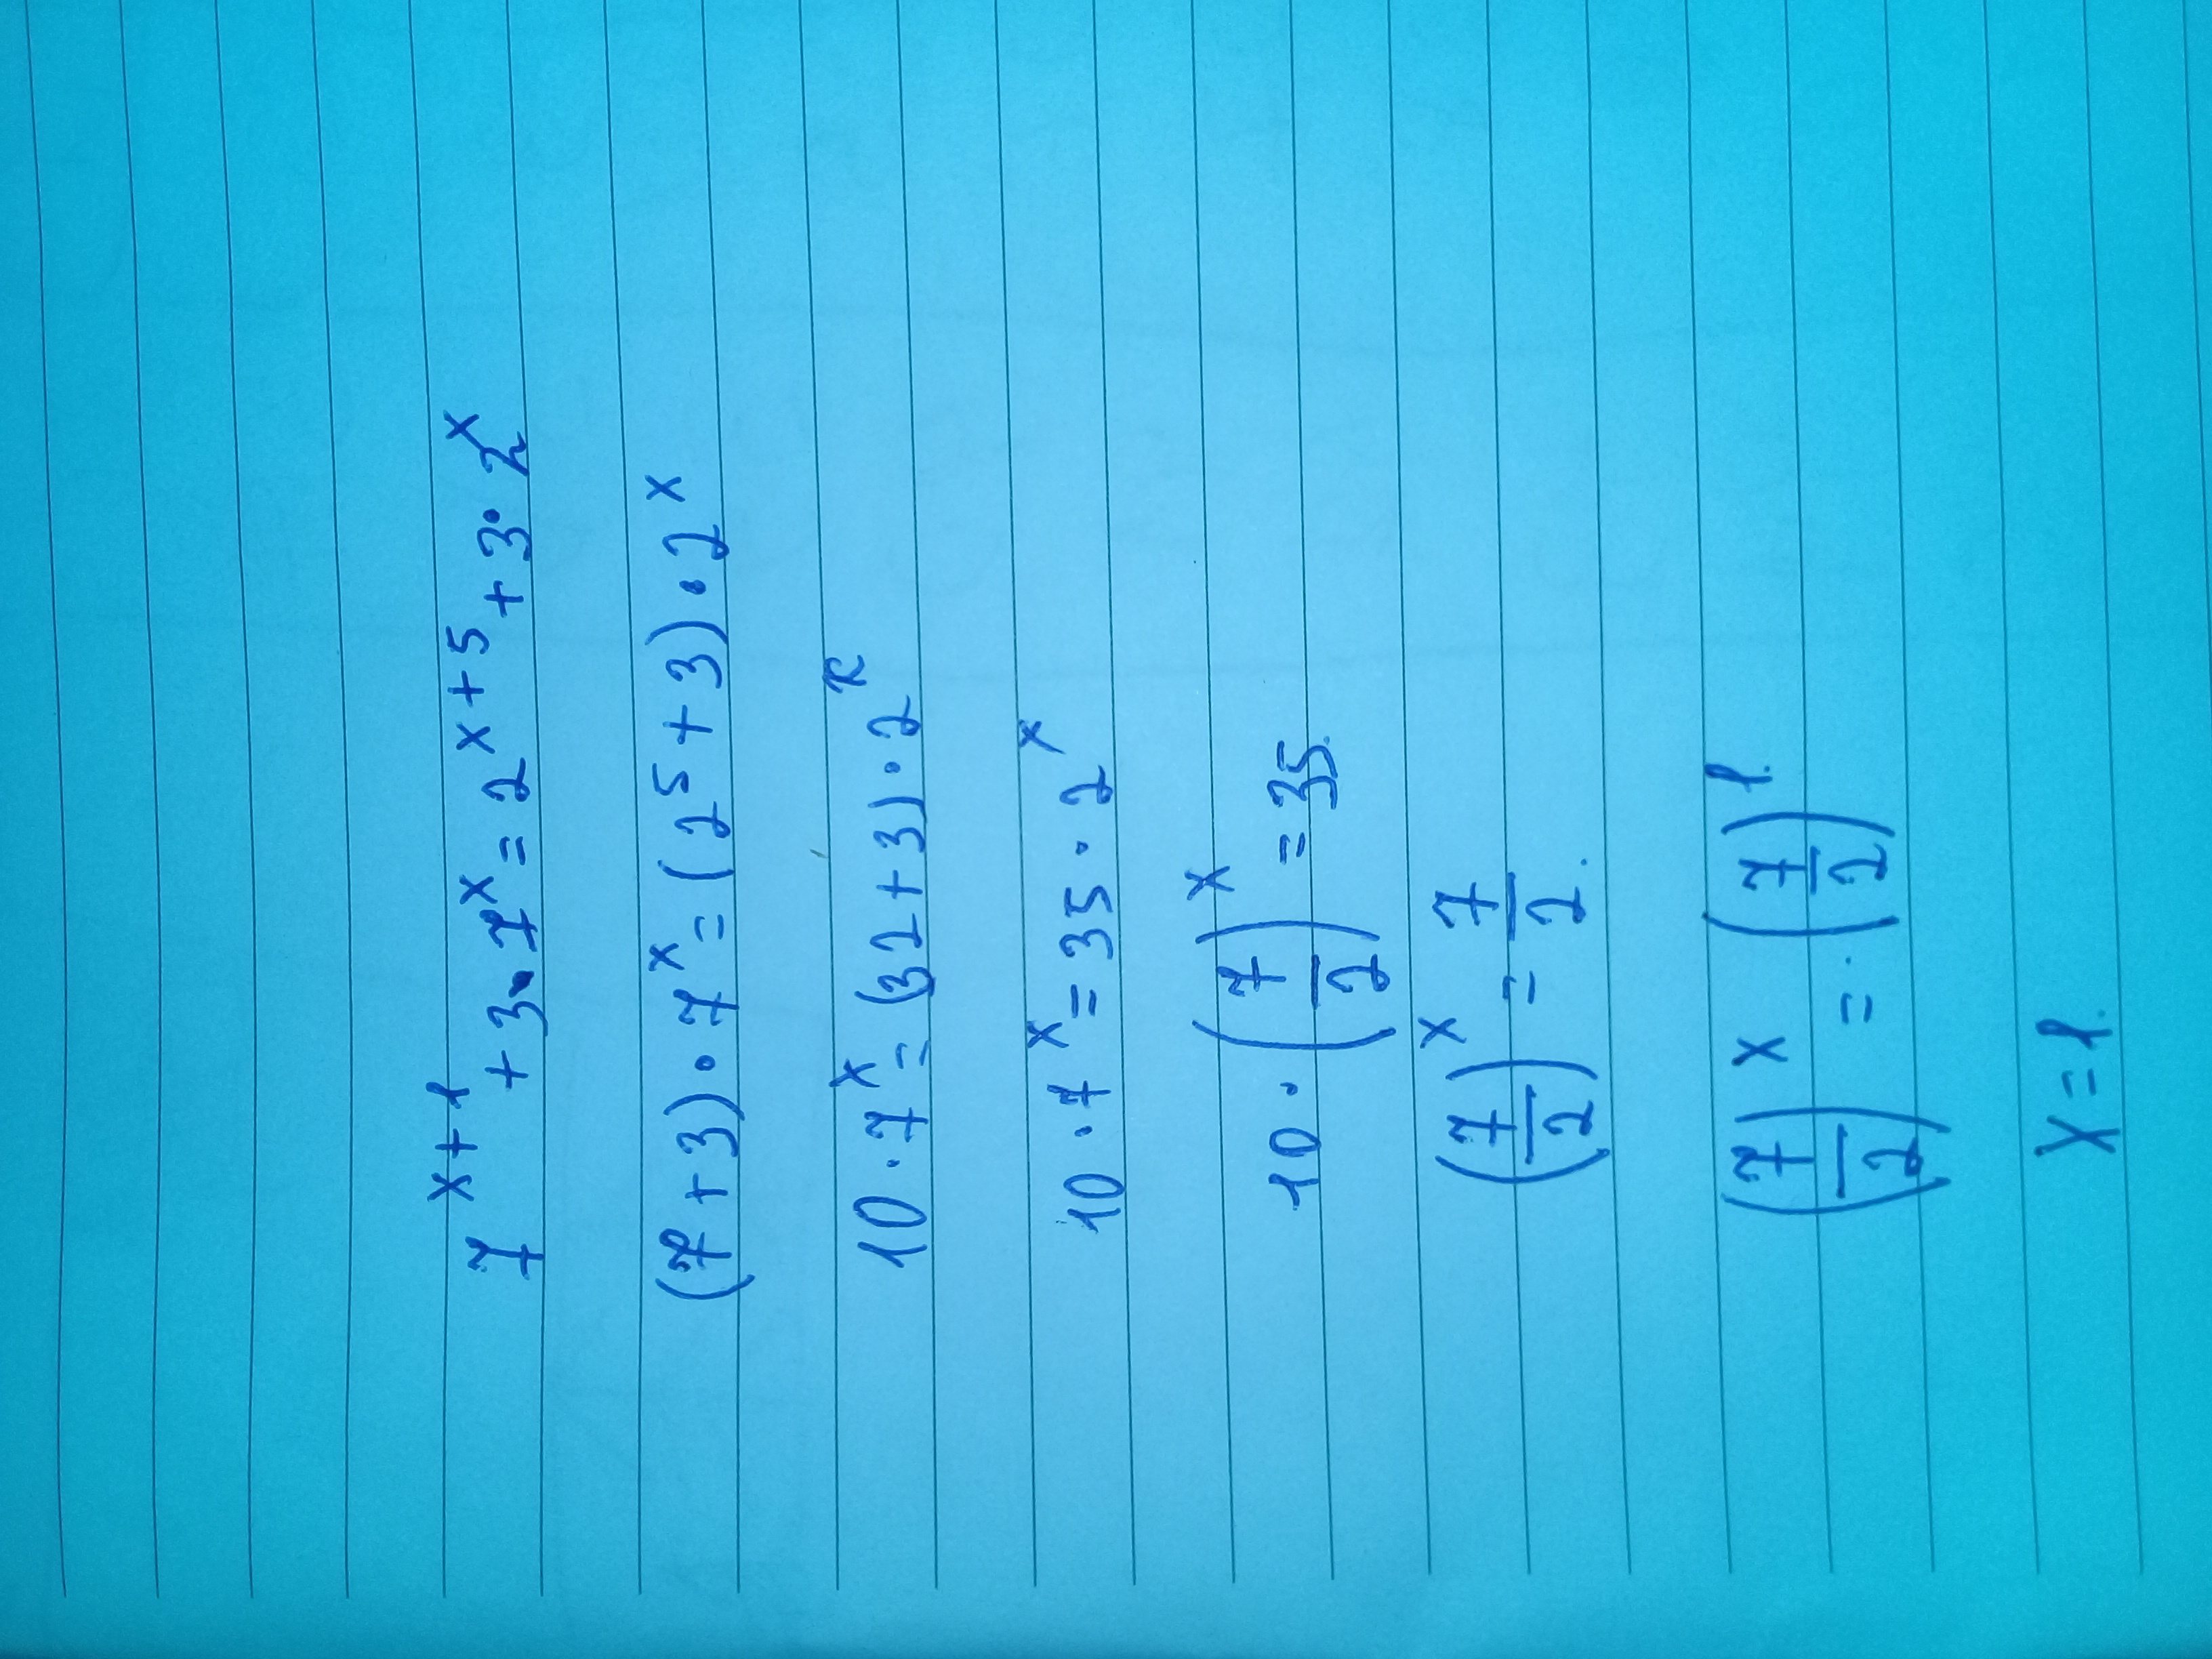 7^{x+1} + 3 · 7^x = 2^{x+5} + 3 · 2^x
(7 + 3) · 7^x = (2^5 + 3) · 2^x
10 · 7^x = (32 + 3) · 2^x
10 · 7^x = 35 · 2^x
10 · (7/2)^x = 35.
(7/2)^x = 7/2.
(7/2)^x = (7/2)^1.
x = 1.